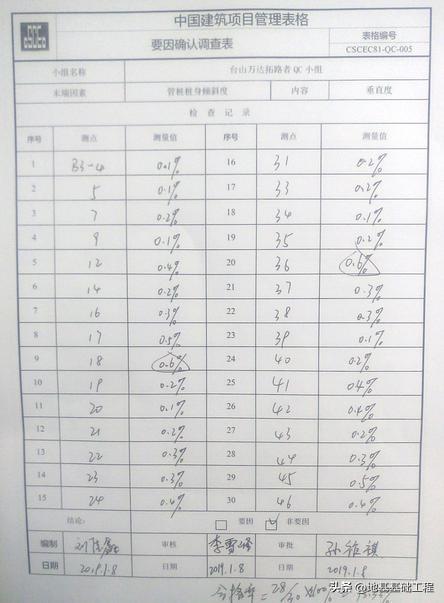 中国建筑项目管理表格
CSCEC
要因确认调查表
表格编号
CSCEC81-QC-005
小组名称 台山万达拓路者QC小组
末端因素 管桩桩身倾斜度 内容 垂直度
检查记录
序号 测点 测量值 序号 测点 测量值
1 B3-4 0.1% 16 31 0.2%
2 5 0.1% 17 33 0.2%
3 7 0.2% 18 34 0.1%
4 9 0.1% 19 35 0.2%
5 12 0.4% 20 36 0.6%
6 14 0.2% 21 37 0.3%
7 16 0.3% 22 38 0.3%
8 17 0.5% 23 39 0.1%
9 18 0.6% 24 40 0.2%
10 19 0.2% 25 41 0.4%
11 20 0.1% 26 42 0.4%
12 21 0.2% 27 43 0.2%
13 22 0.3% 28 44 0.3%
14 23 0.3% 29 45 0.5%
15 24 0.4% 30 46 0.4%
结论: 要因 非要因
编制 审核 李雪峰 审批
日期 2019.1.8 日期 2019.1.8 日期 2019.1.8
合格率=28/30×100%
头条@地基基础工程